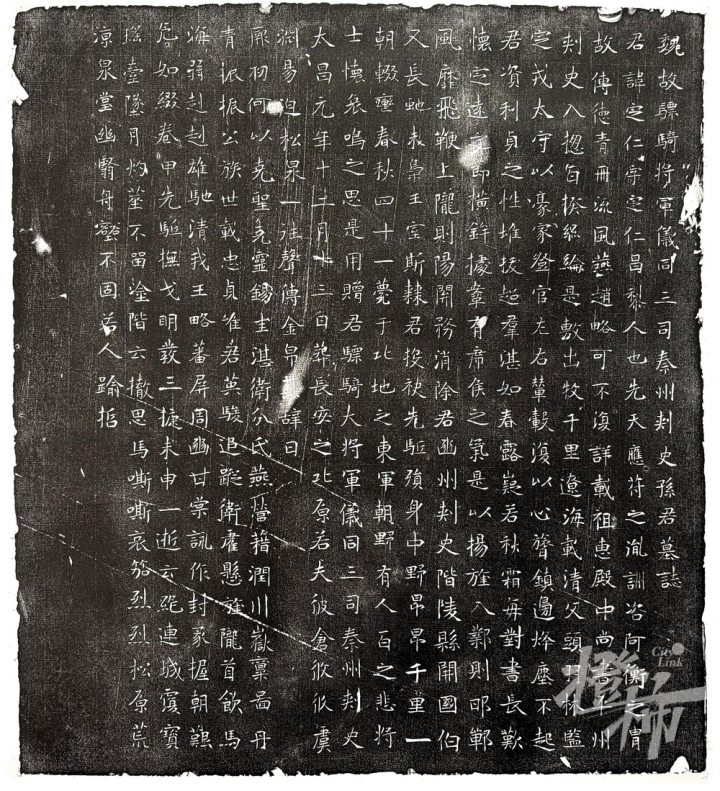 魏故驃騎將軍儀同三司秦州刺史孫君墓誌
君諱定仁字定仁昌黎人也先天應符之胤訓咨阿衡之胄
故傳德青冊流風燕趙略可不復詳載祖惠殿中尚書平州
刺史入揔百揆絲綸是敷出牧千里遼海載清父頭羽林監
定戎太守以豪家登官左右輦轂復以心膂鎮邊烽塵不起
君資利貞之性堆拔超羣湛如春露嚴若秋霜每對書長歎
懷定遠之即橫鉾據鞌有席侯之氣是以揚旌入鄴則邯鄲
風靡飛鞭上隴則陽關務消除君豳州刺史階陵縣開國伯
又長虵未梟王室斯隸君投袂先駈殞身中野昂昂千里一
朝輟塵春秋四十一薨于北地之東軍朝野有人百之悲將
士懷殄鳴之思是用贈君驃騎大將軍儀同三司秦州刺史
太昌元年十二月十三日葬長安之北原若夫彼倉攸攸虞
淵易迫松泉一往聲傳金帛其辭曰
厥初何以克聖克靈錫圭湛衛分氏燕營藉潤川嶽稟昌丹
青振振公族世載忠貞唯君英駿追蹤衛霍懸旌隴首飲馬
海碣赳赳雄馳清我王略蕃屏周豳甘棠訊作封豕握朝難
危如綴卷甲先駈撫戈明發三捷未申一逝云絕連城霣寶
瑤臺墜月灼莖不留塗階云撤思馬嘶嘶哀笳烈烈松原荒
涼泉堂幽翳舟壑不固若人踰拓
橙柿
City Link